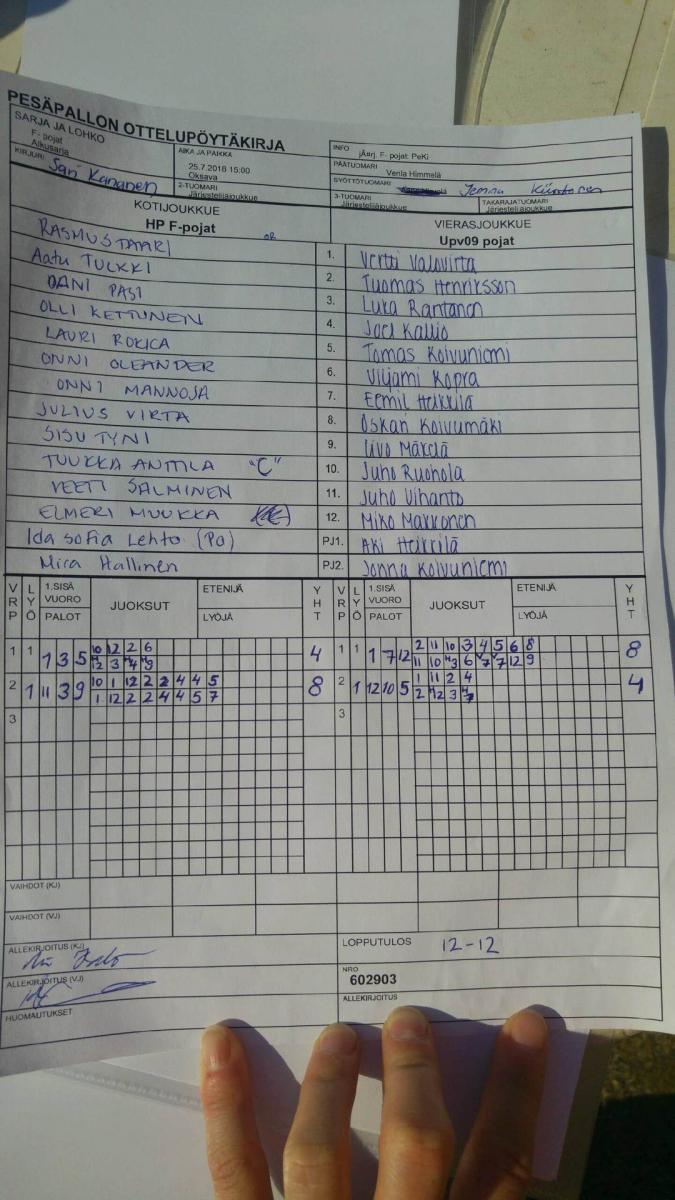 PESÄPALLON OTTELUPÖYTÄKIRJA
SARJA JA LOHKO
F- pojat
Aikusarja
AIKA JA PAIKKA
25.7.2018 15:00
Oksava
INFO
jÄsrj. F. pojat: PeKi
PÄÄTUOMARI Venla Himmelä
KIRJURI Sari Kananen
2-TUOMARI
Järjestelijäjoukkue
SYÖTTÖTUOMARI Jemina
3-TUOMARI
Järjestelijäjoukkue
TAKARAJATUOMARI
Järjestelijäjoukkue
KOTIJOUKKUE
HP F-pojat
VIERASJOUKKUE
Upv09 pojat
RASMUS TAARI 1. Vertti Valovirta
Aatu TULKKI 2. Tuomas Henriksson
DANI PASI 3. Luka Rantanen
OLLI KETTUNEN 4. Joel Kallio
LAURI ROKKA 5. Tomas Koivuniemi
ONNI OLEANDER 6. Viljami Kopra
ONNI MANNOJA 7. Eemil Heikkilä
JULIUS VIRTA 8. Oskari Koivumäki
SISU TYNI 9. Mäkelä
TUUKKA ANTTILA "C" 10. Juho Ruohola
VEETI SALMINEN 11. Juho Vihanto
ELMERI MUUKKA 12. Miko Makkonen
Ida Sofia Lehto (PO) PJ1. Aki Heikkilä
Mira Hallinen PJ2. Jonna Koivuniemi
VRP LYÖ 1.SISÄ VUORO PALOT JUOKSUT ETENIJÄ LYÖJÄ YHT VRP LYÖ 1.SISÄ VUORO PALOT JUOKSUT ETENIJÄ LYÖJÄ YHT
1 1 1 3 5 10 12 2 6 4 1 1 1 7 12 2 11 10 3 4 5 6 8 8
2 3 4 9 11 10 3 6 7 7 12 9
2 1 11 3 9 10 1 12 2 2 4 4 5 8 2 1 12 10 5 1 11 2 4 4
1 12 2 2 4 4 5 7 2 12 3 7
3 3
VAIHDOT (KJ)
VAIHDOT (VJ)
ALLEKIRJOITUS (KJ)
LOPPUTULOS 12-12
ALLEKIRJOITUS (VJ)
NRO
602903
HUOMAUTUKSET
ALLEKIRJOITUS